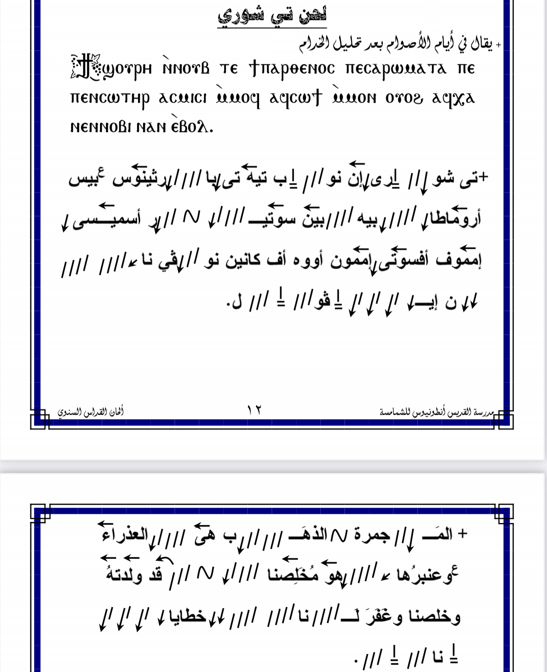 لحن تي شوري
+ يقال في أيام الأصوام بعد تحليل الخدام
Ϯϣⲟⲩⲣⲏ ⲛ̀ⲛⲟⲩⲃ ⲧⲉ ϯⲡⲁⲣⲑⲉⲛⲟⲥ ⲡⲉⲥⲁⲣⲱⲙⲁⲧⲁ ⲡⲉ
ⲡⲉⲛⲥⲱⲧⲏⲣ ⲁⲥⲙⲓⲥⲓ ⲙ̀ⲙⲟϥ ⲁϥⲥⲱϯ ⲙ̀ⲙⲟⲛ ⲟⲩⲟϩ ⲁϥⲭⲁ
ⲛⲉⲛⲛⲟⲃⲓ ⲛⲁⲛ ⲉ̀ⲃⲟⲗ.
+تى شو رى إن نو ب تيه تى با رثينوس بيس
أروماطا بيه بين سوتيـ ر أسميـسى
إمموف أفسوتى إممون أووه أف كانين نو ڤي نا
ن إيـ ڤو ل.
مدرسة القديس أنطونيوس للشمامسة ١٢ ألحان القداس السنوي
+ المَـ جمرة الذهَـ ب هىَ العذراءَ
وعنبرُها هو مُخَلِصنا قد ولدتهُ
وخلصنا وغَفَرَ لَـ نا خطايا
نا .